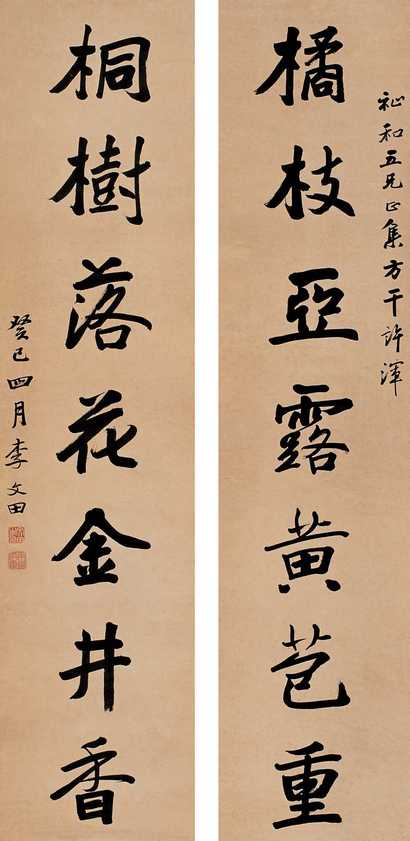 祉和五兄正集方干許渾
橘枝亞露黄苞重
桐樹落花金井香
癸巳四月李文田